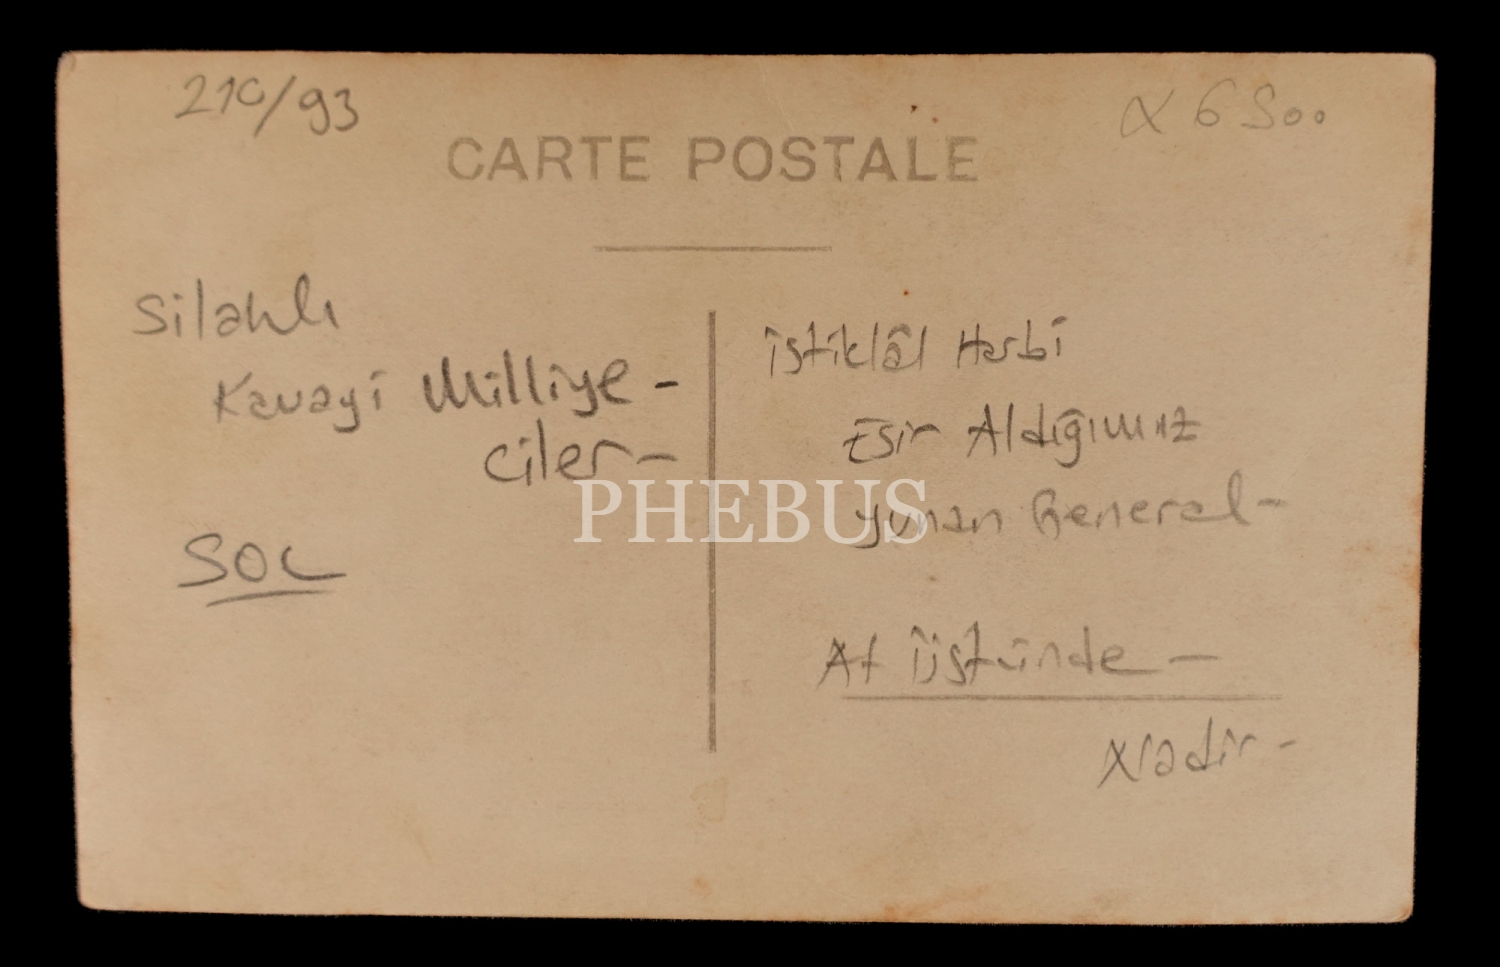 210/93
α 6500
CARTE POSTALE
Silahlı
Kavayi Milliye -
ciler-
SOL
İstiklâl Harbi
Esir Aldığımız
Yunan General-
At üstünde -
Nadir -
PHEBUS